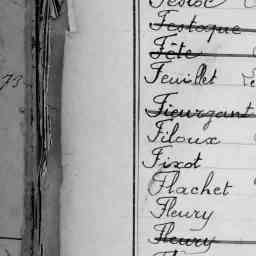 Festoque
Fête
Feuillet
73
Fieurgant
Filoux
Fixot
Flachet
Fleury
Fleury